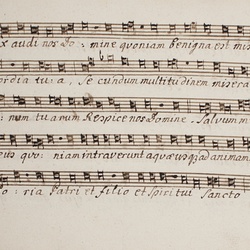 x audi nos Do: mine quoniam benigna est mis
ordia tu: a, Se cundum multitudinem misera
: num tuarum Respice nos Domine. Salvum m
eus quo: niam intraverunt aquæ usq; ad animam
o: ria Patri et filio et spiritui Sancto